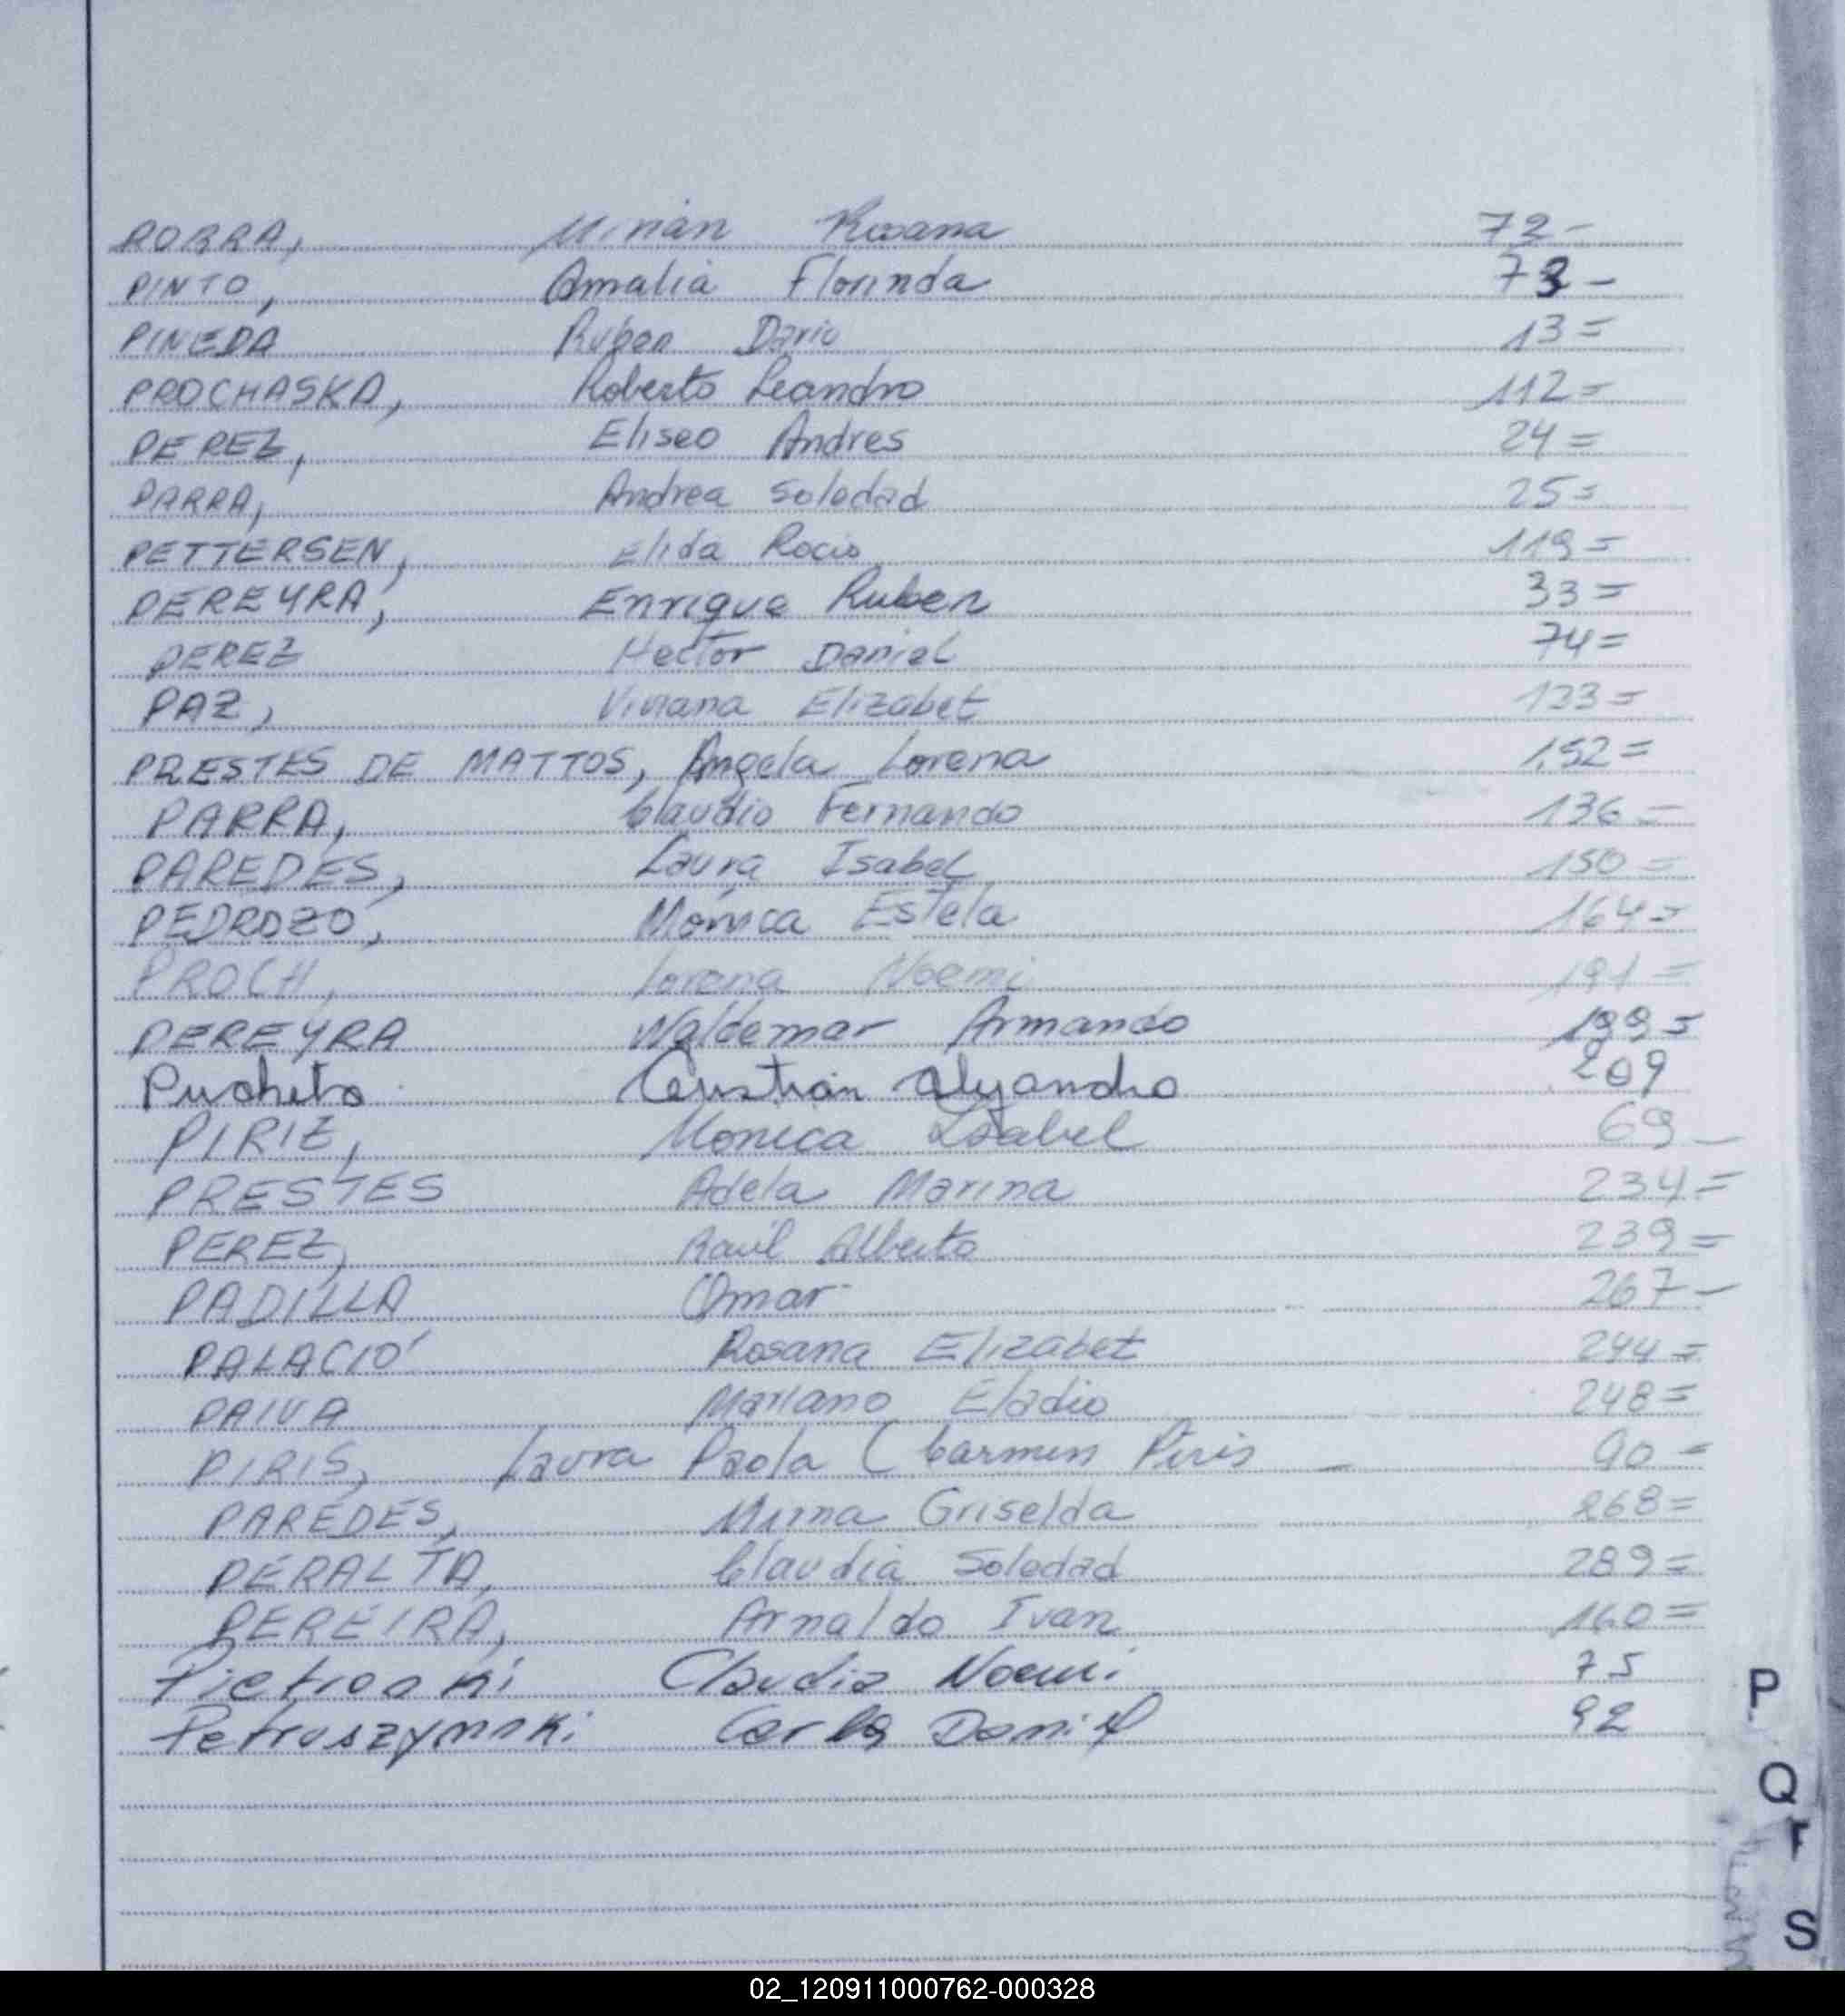 PORRA, Mirian Roxana 72-
PINTO, Amalia Florinda 73-
PINEDA Ruben Dario 13=
PROCHASKA, Roberto Leandro 112=
PEREZ, Eliseo Andres 24=
PARRA, Andrea Soledad 25=
PETTERSEN, Elida Rocio 119=
PEREYRA, Enrique Ruben 33=
PEREZ Hector Daniel 74=
PAZ, Viviana Elizabet 133=
PRESTES DE MATTOS, Angela Lorena 152=
PARRA, Claudio Fernando 136=
PAREDES, Laura Isabel 150=
PEDROZO, Mónica Estela 164=
PROCH, Lorena Noemi 191=
PEREYRA Waldemar Armando 199=
Pucheta Cristian Alejandro 209
PIRIZ, Monica Isabel 69-
PRESTES Adela Marina 234=
PEREZ, Raúl Alberto 239=
PADILLA Omar 267-
PALACIO Rosana Elizabet 244=
PAIVA Mariano Eladio 248=
PIRIS, Laura Paola (Carmen Piris - 90=
PAREDES, Mirna Griselda 268=
PERALTA, Claudia Soledad 289=
PEREIRA, Arnaldo Ivan 160=
Pietroski Claudia Noemi 75
Petruszynski Carlos Daniel 92
P
Q
S
02_120911000762-000328